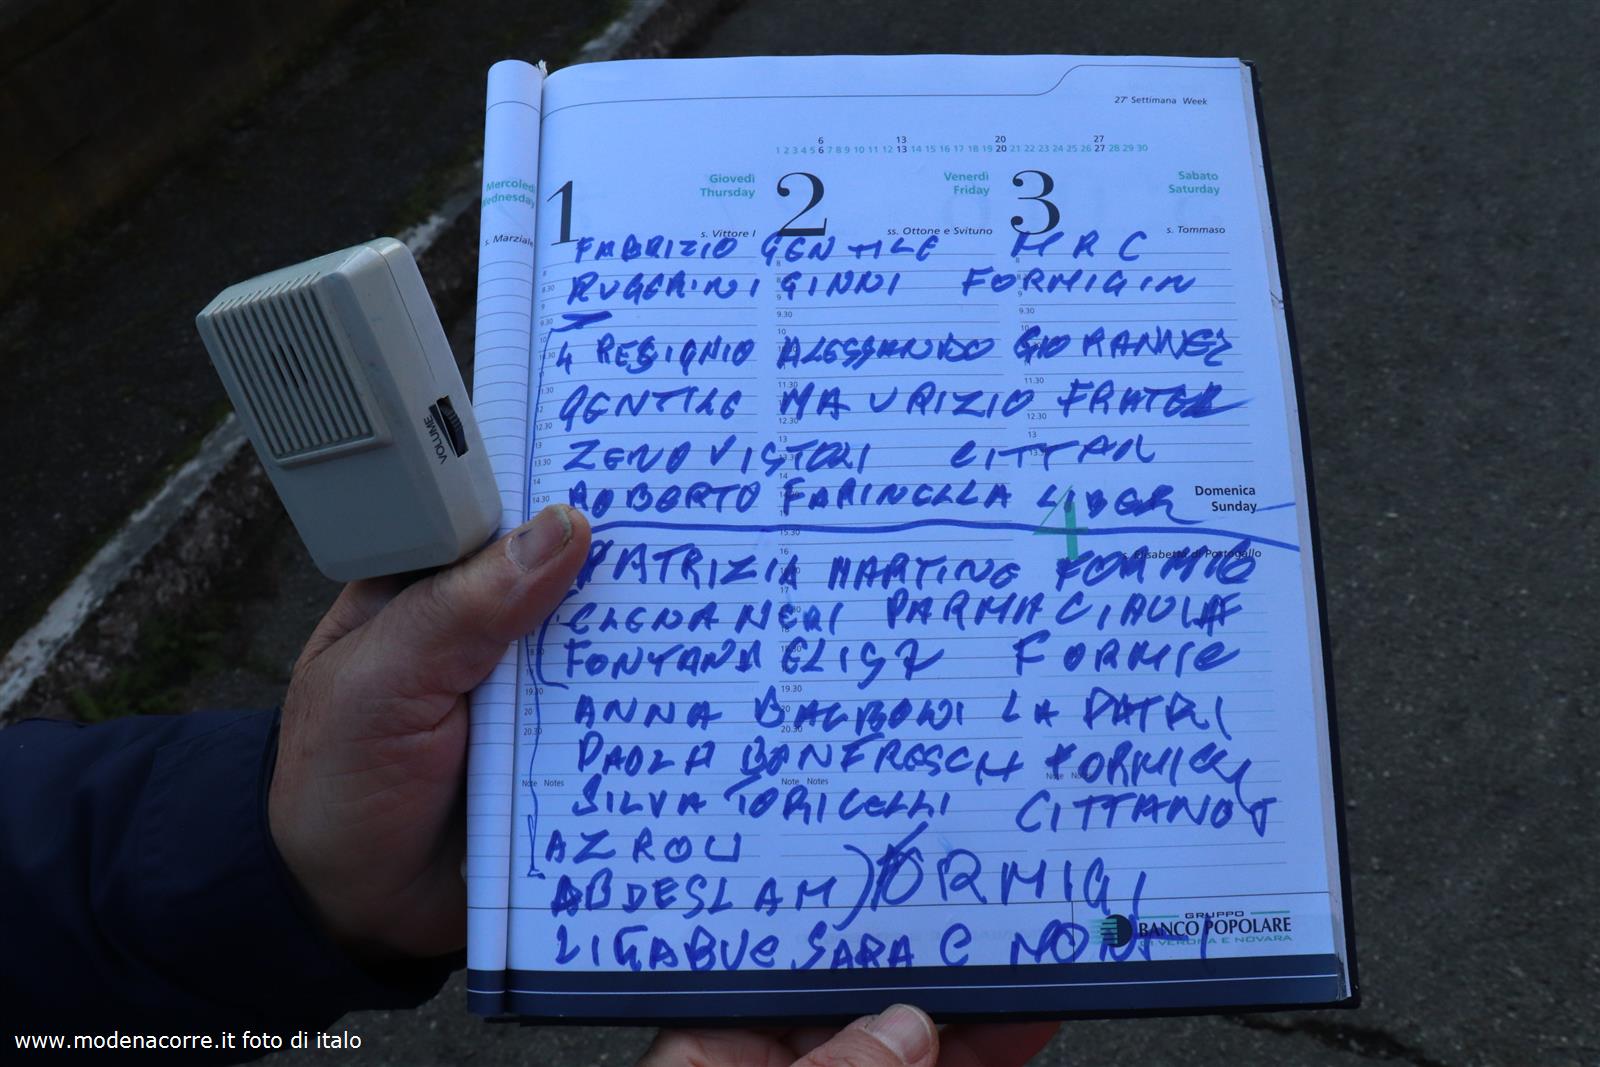 27ª Settimana Week
6 13 20 27
1 2 3 4 5 6 7 8 9 10 11 12 13 14 15 16 17 18 19 20 21 22 23 24 25 26 27 28 29 30
Mercoledì
Wednesday
s. Marziale
1 Giovedì
Thursday
s. Vittore I
2 Venerdì
Friday
ss. Ottone e Svituno
3 Sabato
Saturday
s. Tommaso
FABRIZIO GENTILE MRC
RUGGERINI GINNI FORMIGIN
4 RESIGNIO ALESSANDO
GENTILE MAURIZIO FRATE
ZENO VISTORI CITTAN
ROBERTO FARINELLA LIBER
4 Domenica
Sunday
s. Elisabetta di Portogallo
PATRIZIA MARTINE FORMIG
ELENA NERI PARMA
FONTANA ELISA FORMIG
ANNA BALBONI LA PATRI
PAOLA BONFRESCH FORMIG
Note Notes Note Notes Note Notes
SILVA TORICELLI CITTANO
AZROU
ABDESLAM ) FORMIGI
LIGABUE SARA C MONT
GRUPPO
BANCO POPOLARE
DI VERONA E NOVARA
VOLUME
www.modenacorre.it foto di italo